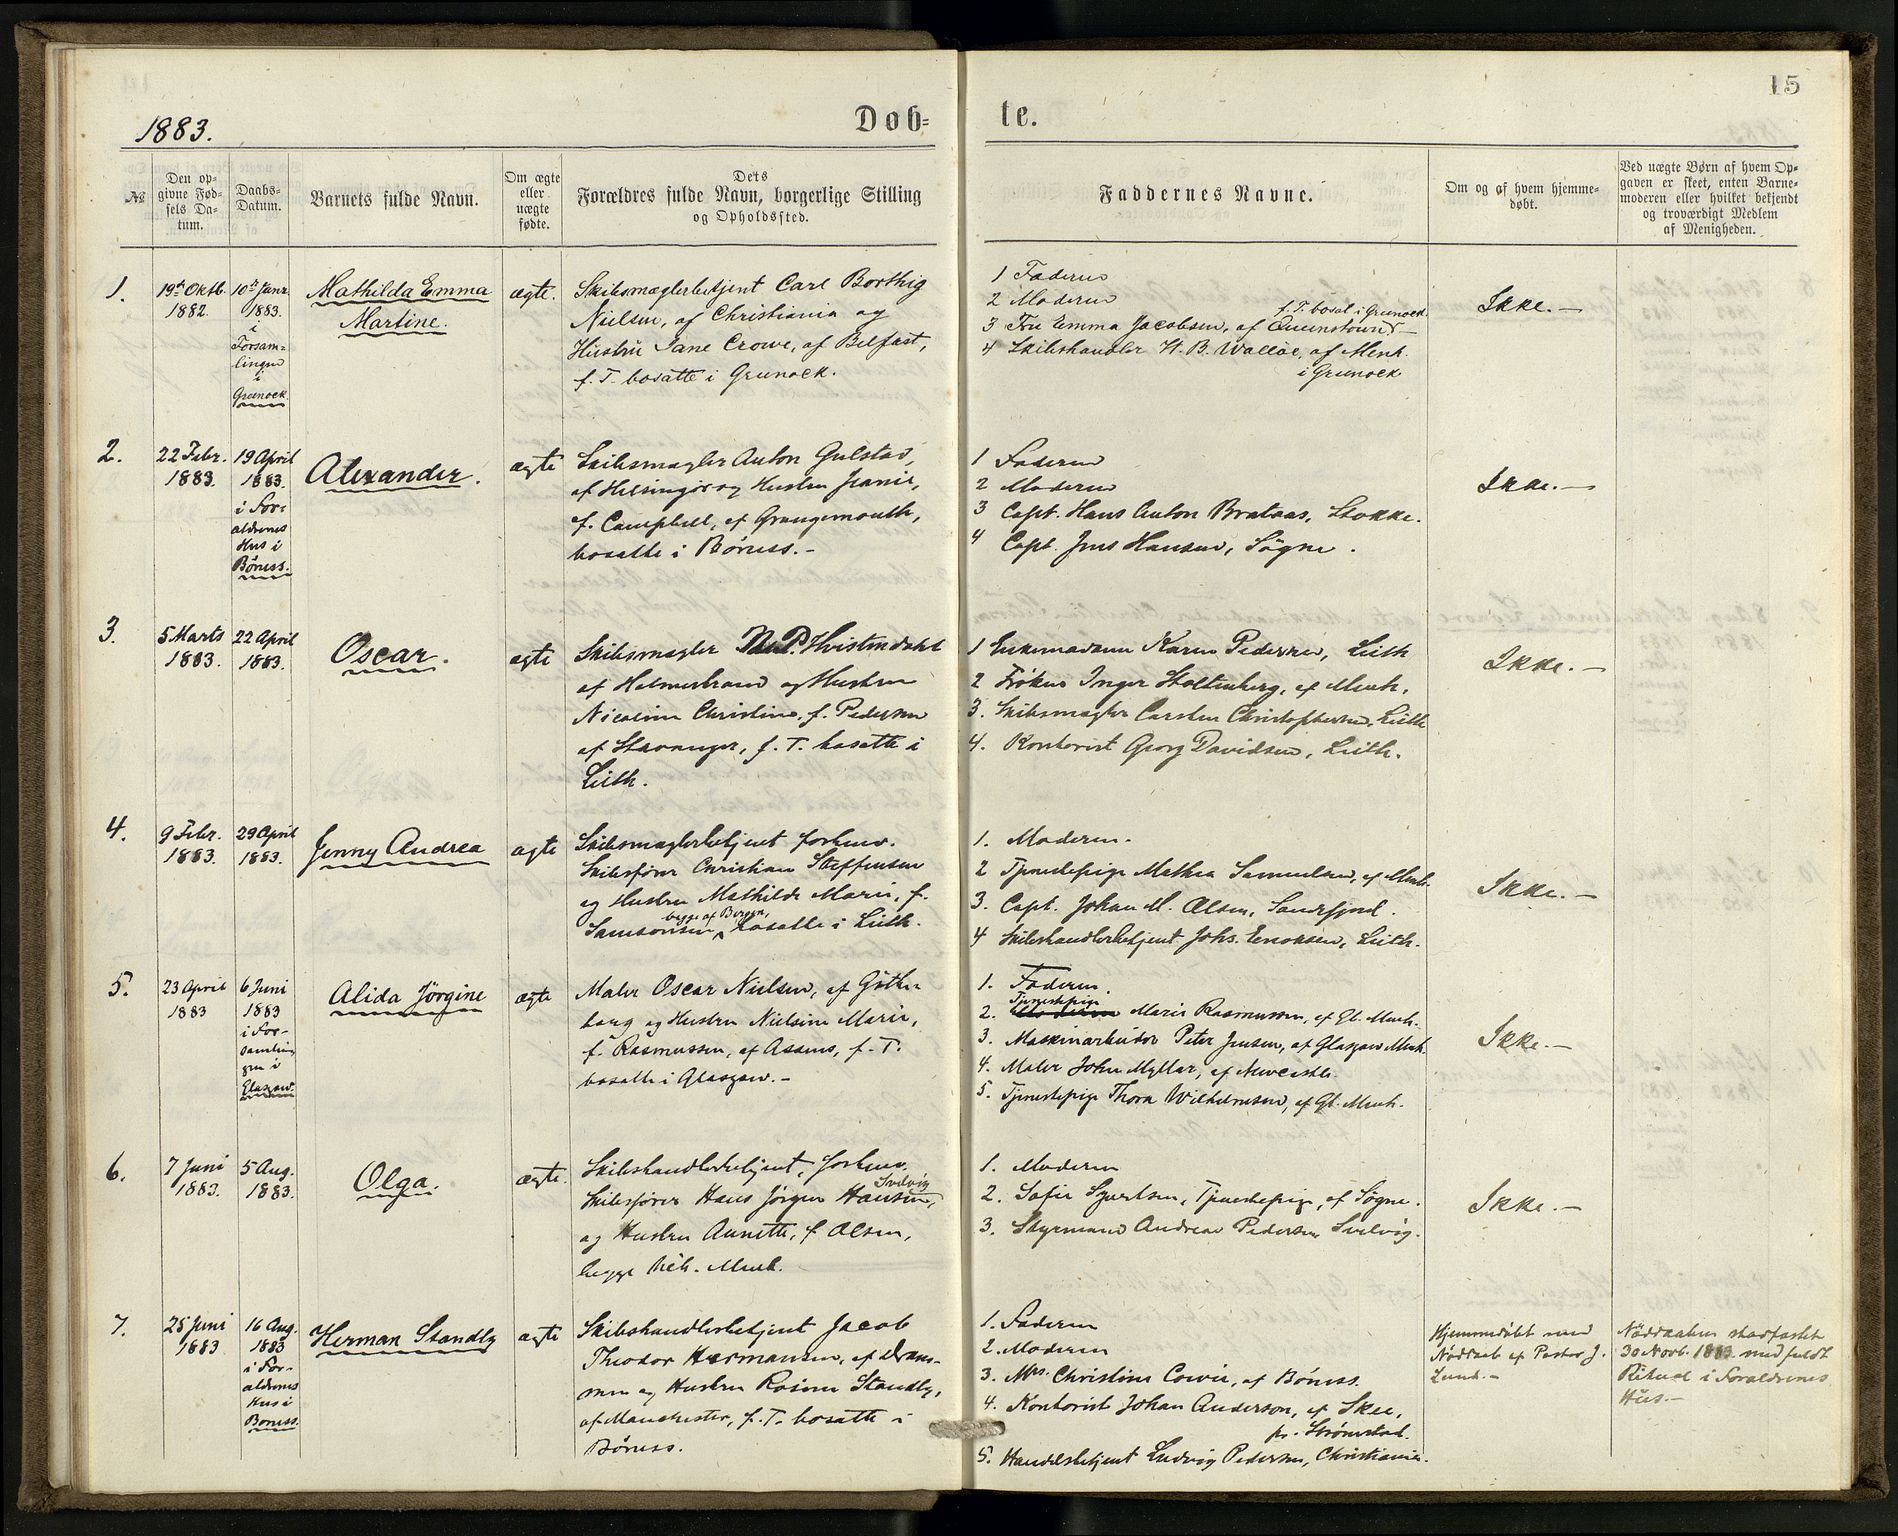 15
1883.
Dob=
te.
№
Den op-
givne Fød-
sels Da-
tum.
Daabs-
Datum.
Barnets fulde Navn.
Om ægte
eller
uægte
fødte.
Dets
Forældres fulde Navn, borgerlige Stilling
og Opholdssted.
Faddernes Navne.
Om og af hvem hjemme-
døbt.
Ved uægte Børn af hvem Op-
gaven er skeet, enten Barne-
moderen eller hvilket bekjendt
og troværdigt Medlem
af Menigheden.
1.
19de Oktb.
1882.
10de Janr.
1883.
i
Forsam-
lingen
i
Greenock.
Mathilda Emma
Martine.
ægte.
Skibsmæglerbetjent Carl Borthig
Nielsen, af Christiania og
Hustru Jane Crowe, af Belfast,
f. T. bosatte i Greenock.
1 Faderen
2 Moderen
f. T. bosat i Greenock.
3 Fru Emma Jacobsen, af Queenstown
4 Skibshandler H. B. Walløe, af Menh.
i Greenock
Ikke. —
2.
22 Febr.
1883.
19 April
1883.
i For-
ældrenes
Hus i
Bóness.
Alexander.
ægte
Skibsmægler Anton Gulstad,
af Helsingør og Hustru Jeanie,
f. Campbell, af Grangemouth,
bosatte i Bóness. -
1 Faderen
2 Moderen
3 Capt. Hans Anton Brataas, Stokke.
4 Capt. Jens Hansen, Søgne.
Ikke. —
3.
5 Marts
1883.
22 April
1883.
Oscar.
ægte
Skibsmægler P. Hvistendahl
af Holmestrand og Hustru
Nicoline Christine, f. Pedersen
af Stavanger, f. T. bosatte i
Leith.
1 Enkemadam Karen Pedersen, Leith
2 Frøken Inger Stoltenberg, af Menh.
3. Skibsmægler Carsten Christophersen, Leith
4. Kontorist Georg Davidsen, Leith.
Ikke. —
4.
9 Febr.
1883.
29 April
1883.
Jenny Andrea
ægte
Skibsmæglerbetjent forhenv.
Skibsfører Christian Steffensen
og Hustru Mathilde Marie, f.
begge af Bergen,
Samsonsen, bosatte i Leith.
1. Moderen.
2 Tjenestepige Mathea Samuelsen, af Menh.
3. Capt. Johan M. Olsen, Sandefjord.
4 Skibshandlerbetjent Johs. Enoksen, Leith.
Ikke. —
5.
23 April
1883
6 Juni
1883
i For-
samlin-
gen i
Glasgow.
Alida Jörgine
ægte
Maler Oscar Nielsen, af Göthe-
borg og Hustru Nielsine Marie,
f. Rasmussen, af Assens, f. T.
bosatte i Glasgow. -
1. Faderen.
Tjenestepige
2. Moderen Marie Rasmussen, af Gl. Menh.
3. Maskinarbeider Peter Jensen, af Glasgow Menh.
4. Maler John Myllar, af Newcastle.
5. Tjenestepige Thora Wilhelmsen, af Gl. Menh.
Ikke. —
6.
7 Juni
1883.
5 Aug.
1883.
Olga.
ægte.
Skibshandlerbetjent, forhenv.
Svelvig
Skibsfører Hans Jørgen Hansen,
og Hustru Annette, f. Olsen,
begge Menh.
1. Moderen
2. Sofie Sjuertsen, Tjenestepige, af Søgne.
3. Styrmand Andreas Pedersen, Svelvig.
Ikke. —
7.
25 Juni
1883
16 Aug.
1883
i For-
ældrenes
Hus i
Boness.
Herman Standly
ægte
Skibshandlerbetjent Jacob
Theodor Hermansen, af Dram-
men og Hustru Rosine Standly,
af Manchester, f. T. bosatte i
Bóness.
1. Faderen
2. Moderen
3. Mrs Christine Cowie, af Bóness.
4. Kontorist Johan Anderson, af Skee,
pr. Strömstad.
5. Handelsbetjent Ludvig Pedersen, Christiania.
Hjemmedøbt med
Nöddaab af Pastor J.
Lund. -
Nöddaaben stadfæstet
30 Novb. 1883 med fuldt
Ritual i Forældrenes
Hus -